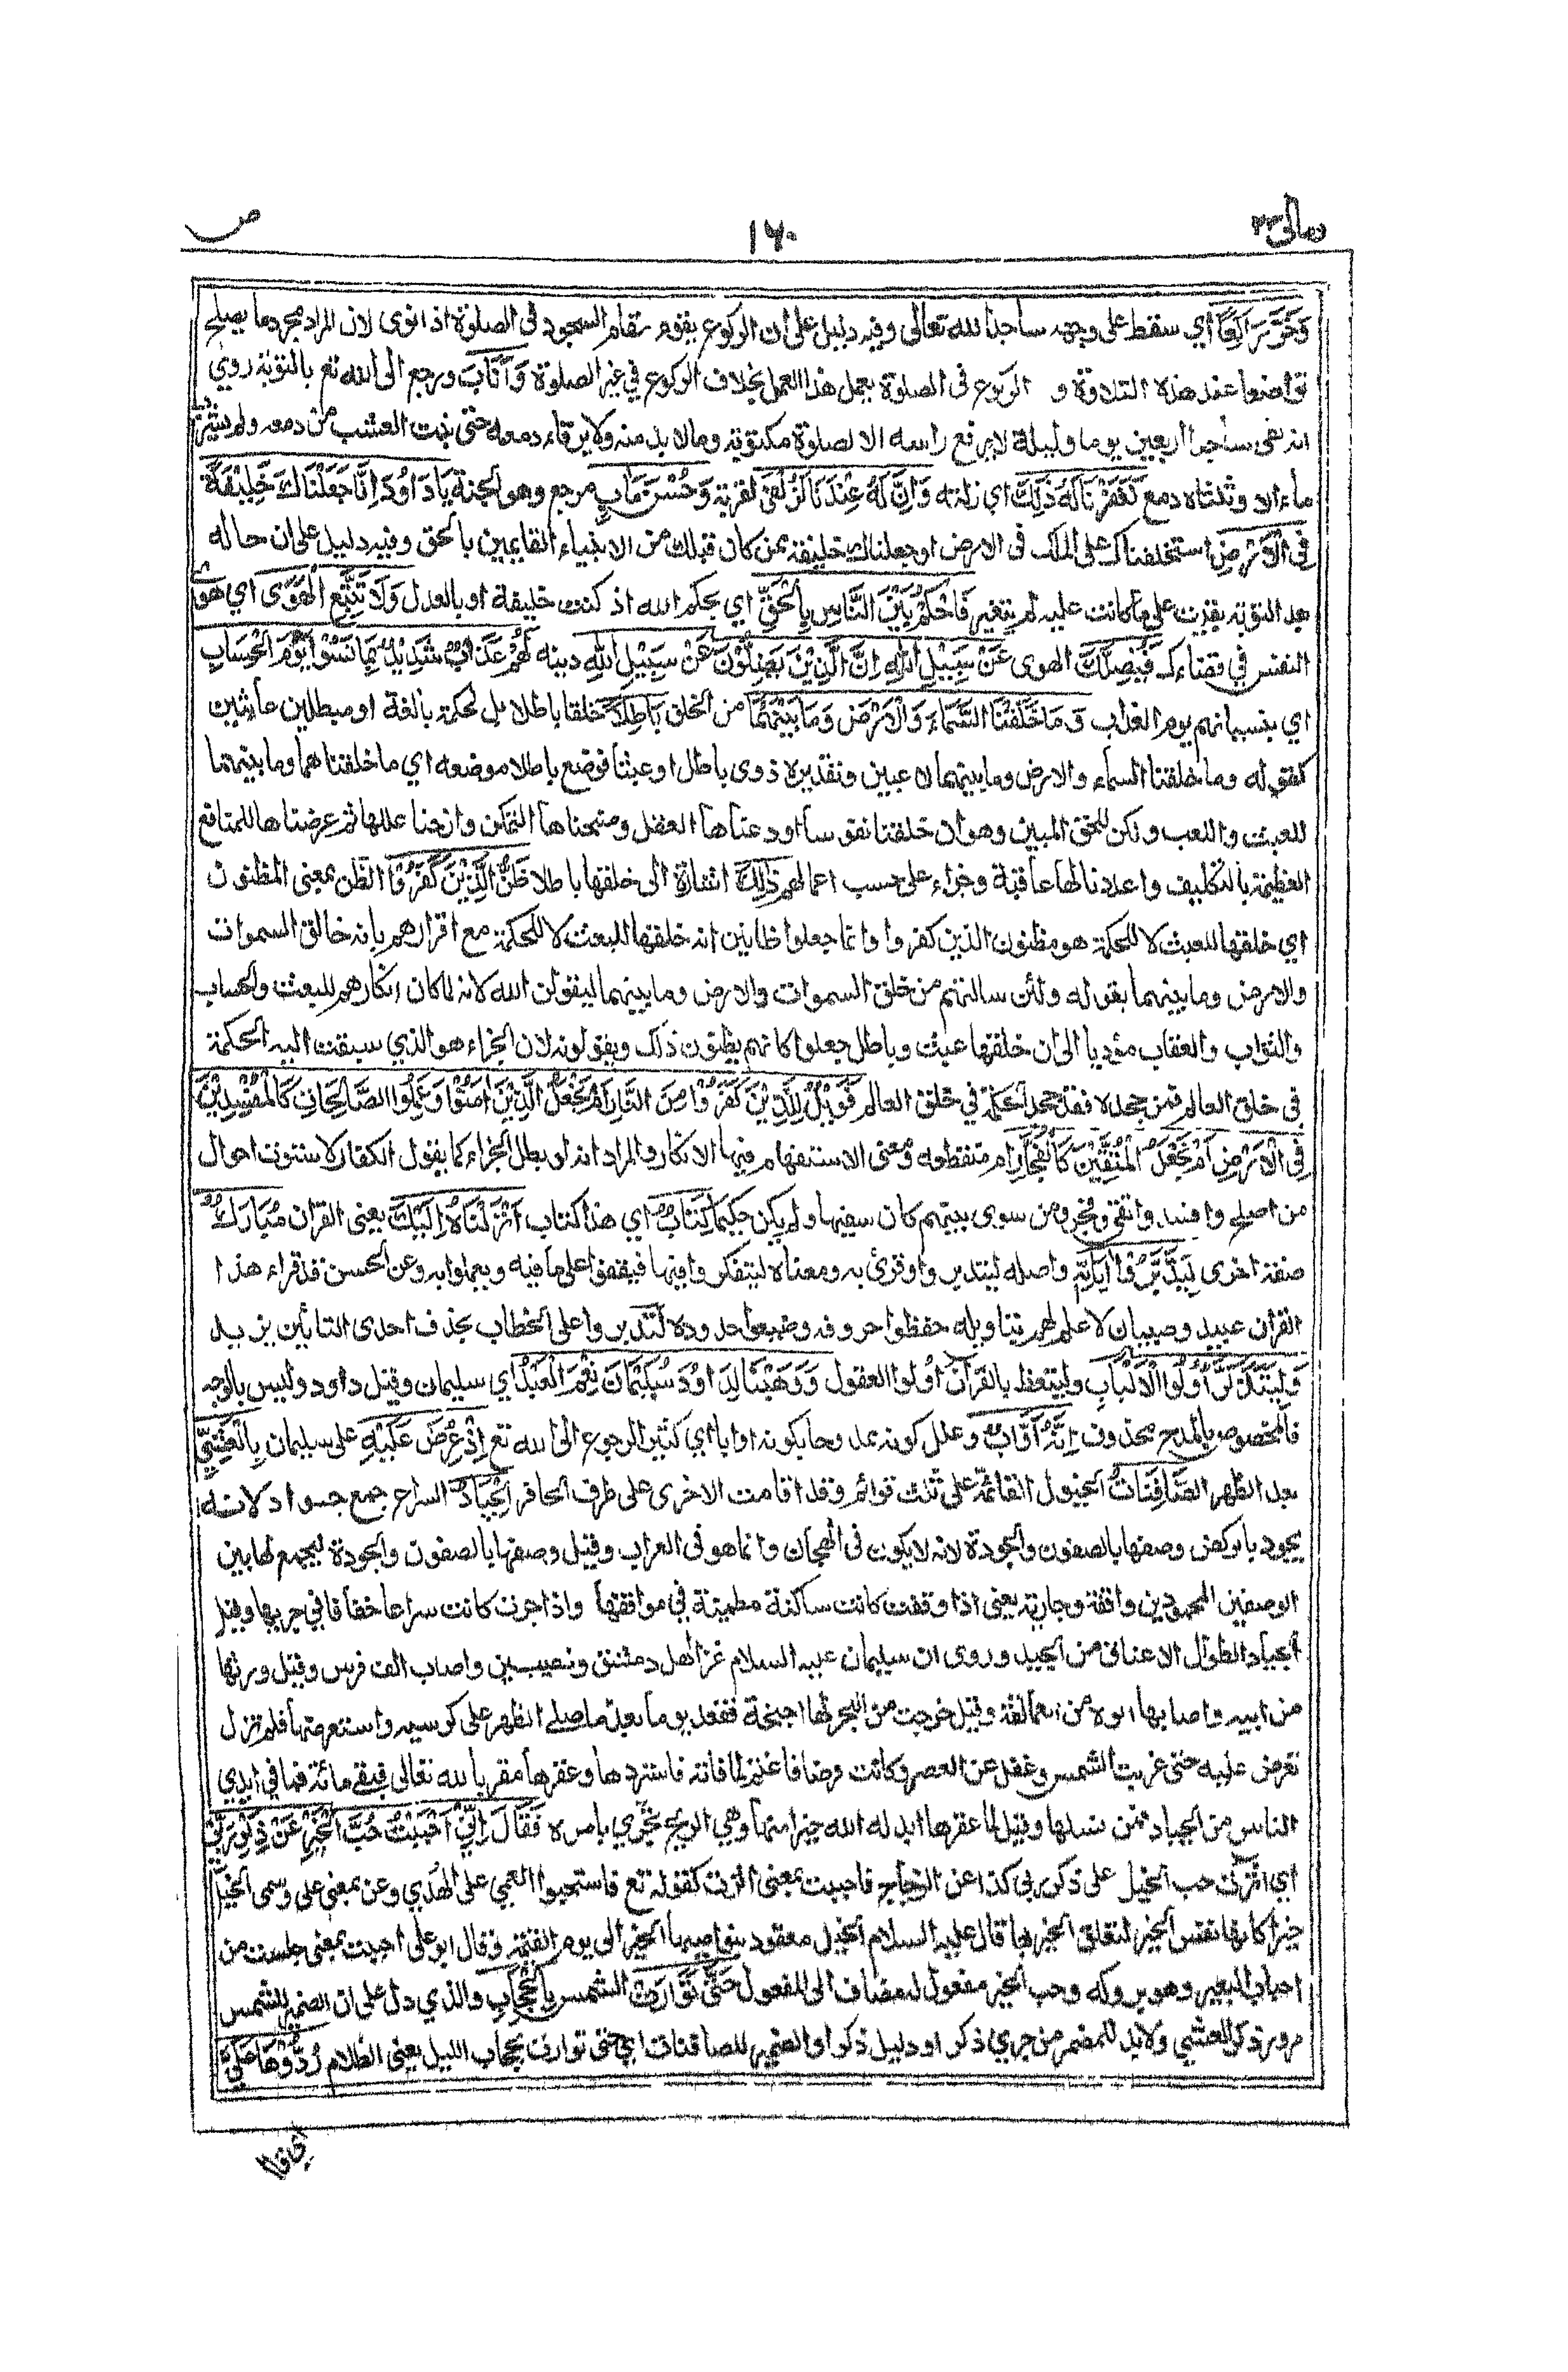 ومالی ۲۳
۱۶۰
ص
وَخَرَّ رَاكِعًا أي سقط على وجهه ساجدا لله تعالى وفيه دليل على أن الركوع يقوم مقام السجود فى الصلوة اذا نوى لان المراد مجرد ما يصلح
تواضعا عند هذه التلاوة و الركوع فى الصلوة يعمل هذا العمل بخلاف الركوع في غير الصلوة وَأَنَابَ ورجع الى الله تع بالتوبة روي
انه بقى ساجدا اربعين يوما وليلة لا يرفع راسه الا لصلوة مكتوبة وما لا بد منه ولا يرقاء دمعه حتى نبت العشب من دمعه ولم يشرب
ماء الا وثلثاه دمع فَغَفَرْنَا لَهُ ذَلِكَ اي زلته وَاِنَّ لَهُ عِنْدَنَا لَزُلْفَى لقربة وَحُسْنَ مَاٰبٍ مرجع وهو الجنة يَادَاوُدَ اِنَّا جَعَلْنَاكَ خَلِيْفَةً
فِى الْاَرْضِ استخلفناك على الملك فى الارض او جعلناك خليفة ممن كان قبلك من الانبياء القايمين بالحق وفيه دليل على ان حاله
بعد التوبة بقيت على ما كانت عليه لم يتغير فَاحْكُمْ بَيْنَ النَّاسِ بِالْحَقِّ اي بحكم الله اذ كنت خليفة او بالعدل وَلَا تَتَّبِعِ الْهَوَى اي هوى
النفس في قضاءك فَيُضِلَّكَ الهوى عَنْ سَبِيْلِ اللّٰهِ اِنَّ الَّذِيْنَ يَضِلُّوْنَ عَنْ سَبِيْلِ اللّٰهِ دينه لَهُمْ عَذَابٌ شَدِيْدٌ بِمَا نَسُوْا يَوْمَ الْحِسَابِ
اي بنسيانهم يوم العذاب وَمَا خَلَقْنَا السَّمَاءَ وَالْاَرْضَ وَمَا بَيْنَهُمَا من الخلق بَاطِلًا خلقا باطلا بل لحكمة بالغة او مبطلين عابثين
كقوله وما خلقنا السماء والارض وما بينهما لاعبين وتقديره ذوى باطل او عبثا فوضع باطلا موضعه اي ما خلقناهما وما بينهما
للعبث واللعب ولكن للحق المبين وهو ان خلقنا نفوسا اودعناها العقل ومنحناها التمكن وازحنا عللها ثم عرضناها للمنافع
العظيمة بالتكليف واعددنا لها عاقبة وجزاء على حسب اعمالهم ذٰلِكَ اشارة الى خلقها باطلا ظَنُّ الَّذِيْنَ كَفَرُوْا الظن بمعنى المظنون
اي خلقها للعبث لا للحكمة هو مظنون الذين كفروا وانما جعلوا ظانين انه خلقها للبعث لا للحكمة مع اقرارهم بانه خالق السموات
والارض وما بينهما بقوله ولئن سالتهم من خلق السموات والارض وما بينهما ليقولن الله لانه لما كان انكارهم للبعث والحساب
والثواب والعقاب مؤديا الى ان خلقها عبث وباطل جعلوا كانهم يظنون ذلك ويقولونه لان الجزاء هو الذي سبقت اليه الحكمة
في خلق العالم فمن جحده فقد جحد الحكمة في خلق العالم فَوَيْلٌ لِلَّذِيْنَ كَفَرُوْا مِنَ النَّارِ اَمْ نَجْعَلُ الَّذِيْنَ اٰمَنُوْا وَعَمِلُوا الصَّالِحَاتِ كَالْمُفْسِدِيْنَ
فِى الْاَرْضِ اَمْ نَجْعَلُ الْمُتَّقِيْنَ كَالْفُجَّارِ ام منقطعه ومعنى الاستفهام فيها الانكار والمراد انه لو بطل الجزاء كما يقول الكفار لاستوت احوال
من اصلح وافسد واتقى وفجر ومن سوى بينهم كان سفيها ولم يكن حكيما كِتَابٌ اي هذا كتاب اَنْزَلْنَاهُ اِلَيْكَ يعنى القران مُبَارَكٌ
صفة اخرى لِيَدَّبَّرُوْا اٰيَاتِهِ واصله ليتدبروا وقرئ به ومعناه ليتفكروا فيها فيقفوا على ما فيه ويعملوا به وعن الحسن قد قراء هذا
القران عبيد وصبيان لا علم لهم بتاويله حفظوا حروفه وضيعوا حدوده لتدبروا على الخطاب بحذف احدى التائين يزيد
وَلِيَتَذَكَّرَ اُولُوا الْاَلْبَابِ وليتعظ بالقران اولوا العقول وَوَهَبْنَا لِدَاوُدَ سُلَيْمَانَ نِعْمَ الْعَبْدُ اي سليمان وقيل داود وليس بالوجه
فالمخصوص بالمدح محذوف اِنَّهُ اَوَّابٌ وعلل كونه ممدوحا بكونه اوابا اي كثير الرجوع الى الله تع اِذْ عُرِضَ عَلَيْهِ على سليمان بِالْعَشِيِّ
بعد الظهر الصَّافِنَاتُ الخيول القائمة على ثلث قوائم وقد اقامت الاخرى على طرف الحافر اَلْجِيَادُ السراع جمع جواد لانه
يجود بالركض وصفها بالصفون والجودة لانه لا يكون فى الهجان وانما هو فى العراب وقيل وصفها بالصفون والجودة ليجمع لها بين
الوصفين المحمودين واقفة وجارية يعنى اذا وقفت كانت ساكنة مطمئنة في مواقفها واذا جرت كانت سراعا خفافا في جريها وقيل
الجياد الطوال الاعناق من الجيد وروى ان سليمان عليه السلام غزا اهل دمشق ونصيبين واصاب الف فرس وقيل ورثها
من ابيه واصابها ابوه من العمالقة وقيل خرجت من البحر لها اجنحة فقعد يوما بعد ما صلى الظهر على كرسيه واستعرضها فلم تزل
تعرض عليه حتى غربت الشمس وغفل عن العصر وكانت فرضا فاغتم لما فاته فاستردها وعقرها مقربا لله تعالى فبقى مائة فما في ايدي
الناس من الجياد فمن نسلها وقيل لما عقرها ابدله الله خيرا منها وهي الريح تجري بامره فَقَالَ اِنِّيْ اَحْبَبْتُ حُبَّ الْخَيْرِ عَنْ ذِكْرِ رَبِّيْ
اي اثرت حب الخيل على ذكر ربي كذا عن الزجاج فاحببت بمعنى اثرت كقوله تع فاستحبوا العمي على الهدي وعن بمعنى على وسمى الخيل
خيرا كانها نفس الخير لتعلق الخير بها قال عليه السلام الخيل معقود بنواصيها الخير الى يوم القيمة وقال ابو على احببت بمعنى جلست من
احباب البعير وهو بروكه وحب الخير مفعول له مضاف الى المفعول حَتّٰى تَوَارَتْ الشمس بِالْحِجَابِ والذي دل على ان الضمير للشمس
مرور ذكر العشي ولا بد للمضمر من جري ذكر او دليل ذكر او الضمير للصافنات اي حتى توارت بحجاب الليل يعنى الظلام رُدُّوْهَا عَلَيَّ